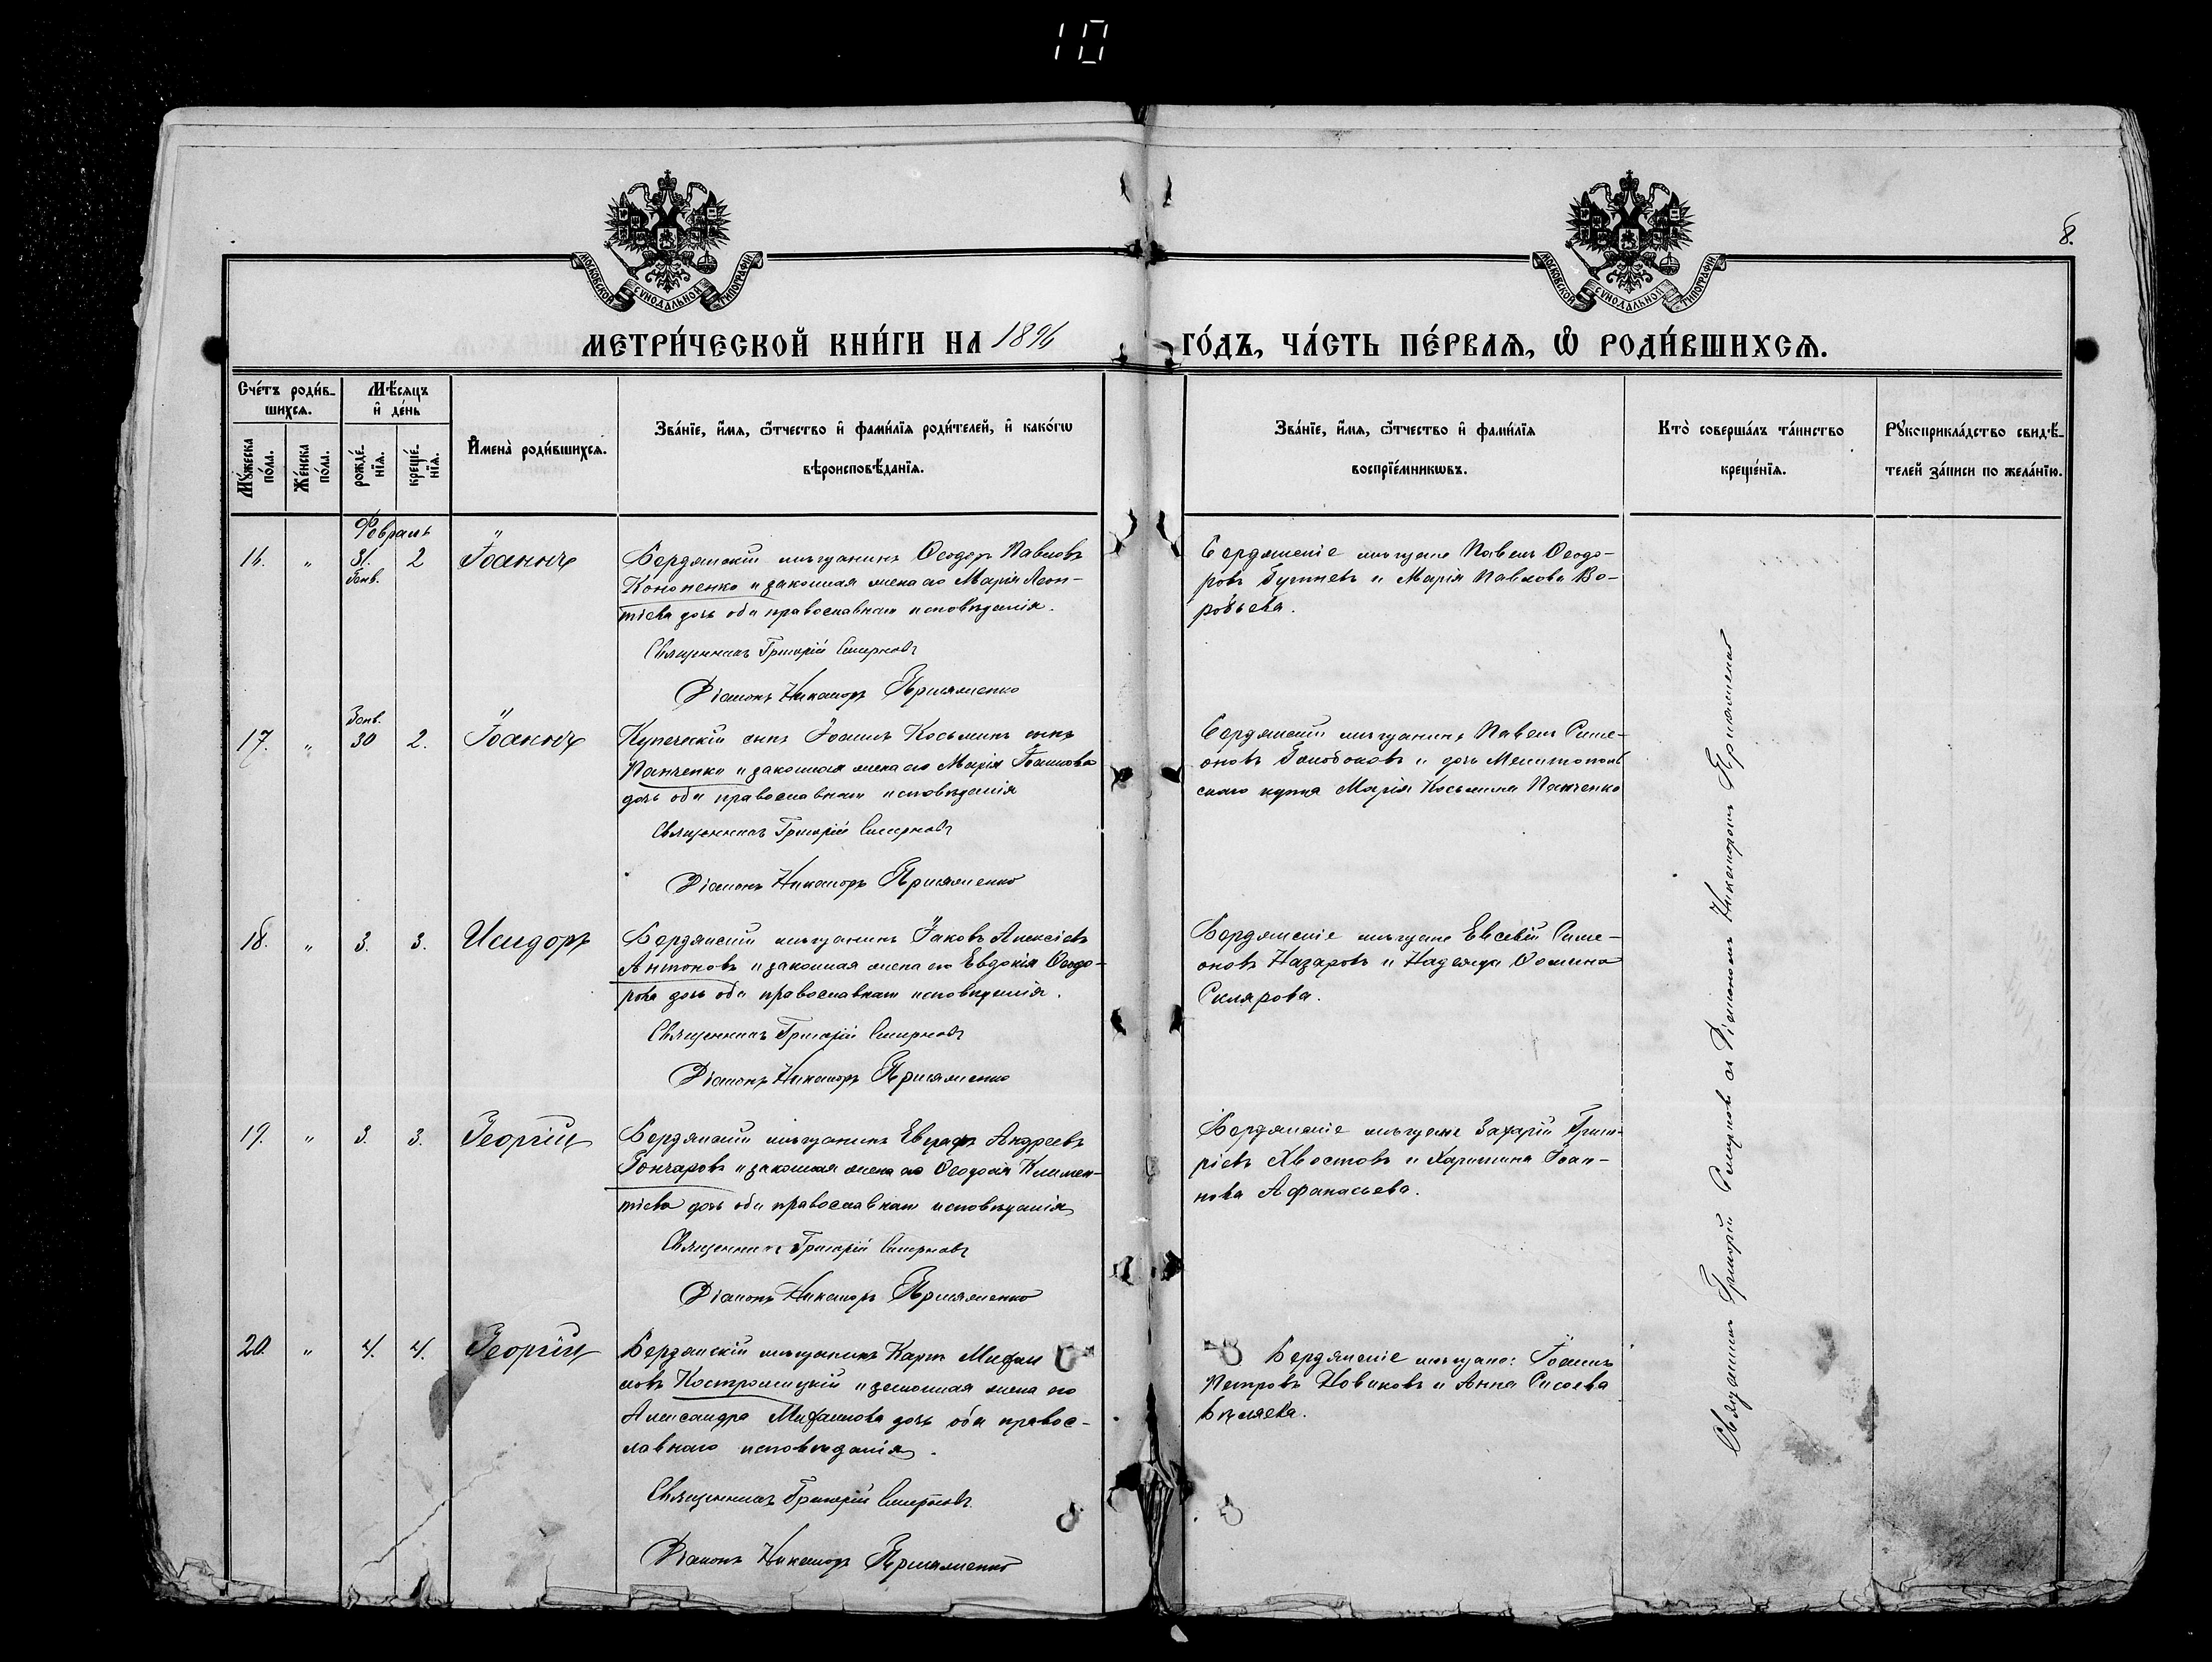 10
8.
МОСКОВСКОЙ СѴНОДАЛЬНОЙ ТИПОГРАФІИ
МОСКОВСКОЙ СѴНОДАЛЬНОЙ ТИПОГРАФІИ
МЕТРИ́ЧЕСКОЙ КНИ́ГИ НА 1896 ГО́ДЪ, ЧА́СТЬ ПЕ́РВАѦ, Ѽ РОДИ́ВШИХСѦ.
Сче́тъ роди́в-
шихсѧ.
Мѣ́сѧцъ
и҆ де́нь
Мꙋ́жеска
по́ла.
Же́нска
по́ла.
рожде́-
нїѧ.
креще́-
нїѧ.
И҆мена̀ роди́вшихсѧ.
Зва́нїе, и҆́мѧ, ѻ҆́тчество и҆ фами́лїѧ роди́телей, и҆ како́гѡ
вѣроисповѣ́данїѧ.
Зва́нїе, и҆́мѧ, ѻ҆́тчество и҆ фами́лїѧ
воспрїе́мникѡвъ.
Кто̀ соверша́лъ та́инство
креще́нїѧ.
Рꙋкоприкла́дство свидѣ́-
телей за́писи по жела́нїю.
Февраль
16. " 31. Генв. 2 Іоаннъ
Бердянскій мѣщанинъ Ѳеодоръ Павловъ
Кононенко и законная жена его Марія Леон-
тіева дочь оба православнаго исповѣданія.
Священникъ Григорій Смирновъ
Діаконъ Никаноръ Присяженко
Бердянскіе мѣщане Павелъ Ѳеодо-
ровъ и Марія Павлова Во-
робьева.
17. " Генв. 30 2. Іоаннъ
Купеческій сынъ Іоаннъ Косьминъ сынъ
Панченко и законная жена его Марія Іоаннова
дочь оба православнаго исповѣданія
Священникъ Григорій Смирновъ
Діаконъ Никаноръ Присяженко
Бердянскій мѣщанинъ Павелъ Симе-
оновъ и дочь Мелитополь
скаго купца Марія Косьмина Панченко
18. " 3. 3. Исидоръ
Бердянскій мѣщанинъ Іаковъ Алексіевъ
Антоновъ и законная жена его Евдокія Ѳеодо-
рова дочь оба православнаго исповѣданія.
Священникъ Григорій Смирновъ
Діаконъ Никаноръ Присяженко
Бердянскіе мѣщане Евсевій Симе-
оновъ Назаровъ и Надежда Ѳомина
Склярова.
19. " 3. 3. Георгій
Бердянскій мѣщанинъ Евграфъ Андреевъ
Гончаровъ и законная жена его Ѳеодосія Климен-
тіева дочь оба православнаго исповѣданія
Священникъ Григорій Смирновъ
Діаконъ Никаноръ Присяженко
Бердянскіе мѣщане Захарій Григо-
ріевъ Хвостовъ и Харитина Іоан-
нова Афанасьева.
20. " 4. 4. Георгій
Бердянскій мѣщанинъ Карпъ
ловъ Костромицкій и законная жена его
Александра дочь оба правос-
лавнаго исповѣданія.
Священникъ Григорій Смирновъ
Діаконъ Никаноръ Присяженко
Бердянскіе мѣщане: Іоаннъ
Петровъ Новиковъ и Анна Сисоева
Бѣляева.
Священникъ Григорій Смирновъ съ Діакономъ Никаноромъ Присяженко